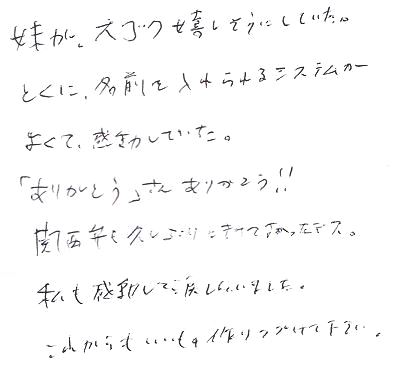 妹が、スゴク嬉しそうにしていた。
とくに、名前を入れられるシステムが
よくて、感動していた。
「ありがとう」さんありがとう!!
関西弁も久しぶりにきけてよかったデス。
私も感動して涙してしまいました。
これからもいいもの作りつづけて下さい。